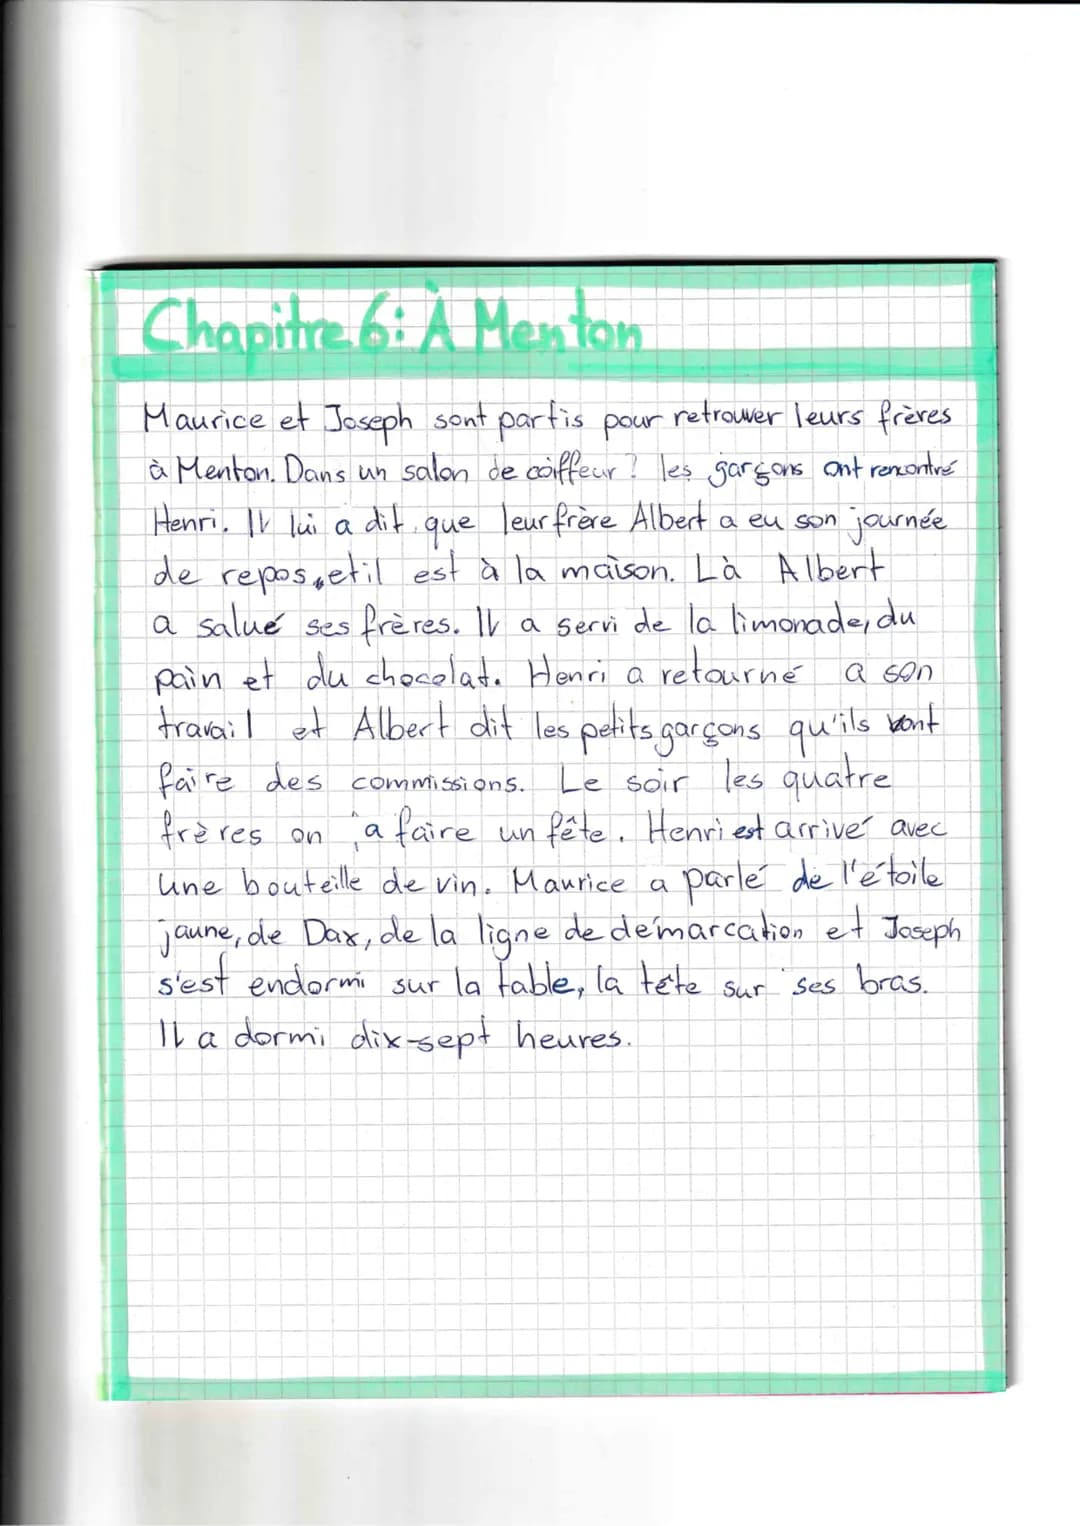 Chapitre 6: À Menton
Maurice et Joseph sont partis pour retrouver leurs frères
à Menton. Dans un salon de coiffeur? les garçons ont rencontré
Henri. Il lui a dit que leur frère Albert a eu son journée
de repos, et il est à la maison. Là Albert
a salué ses frères. Il a servi de la limonade, du
pain et du chocolat. Henri a retourné a son
travail et Albert dit les petits garçons qu'ils vont
faire des commissions. Le soir les quatre
frères on a faire un fête. Henri est arrivé avec
une bouteille de vin. Maurice a parlé de l'étoile
jaune, de Dax, de la ligne de démarcation et Joseph
s'est endormi sur la table, la téte sur ses bras.
Il a dormi dix-sept heures.